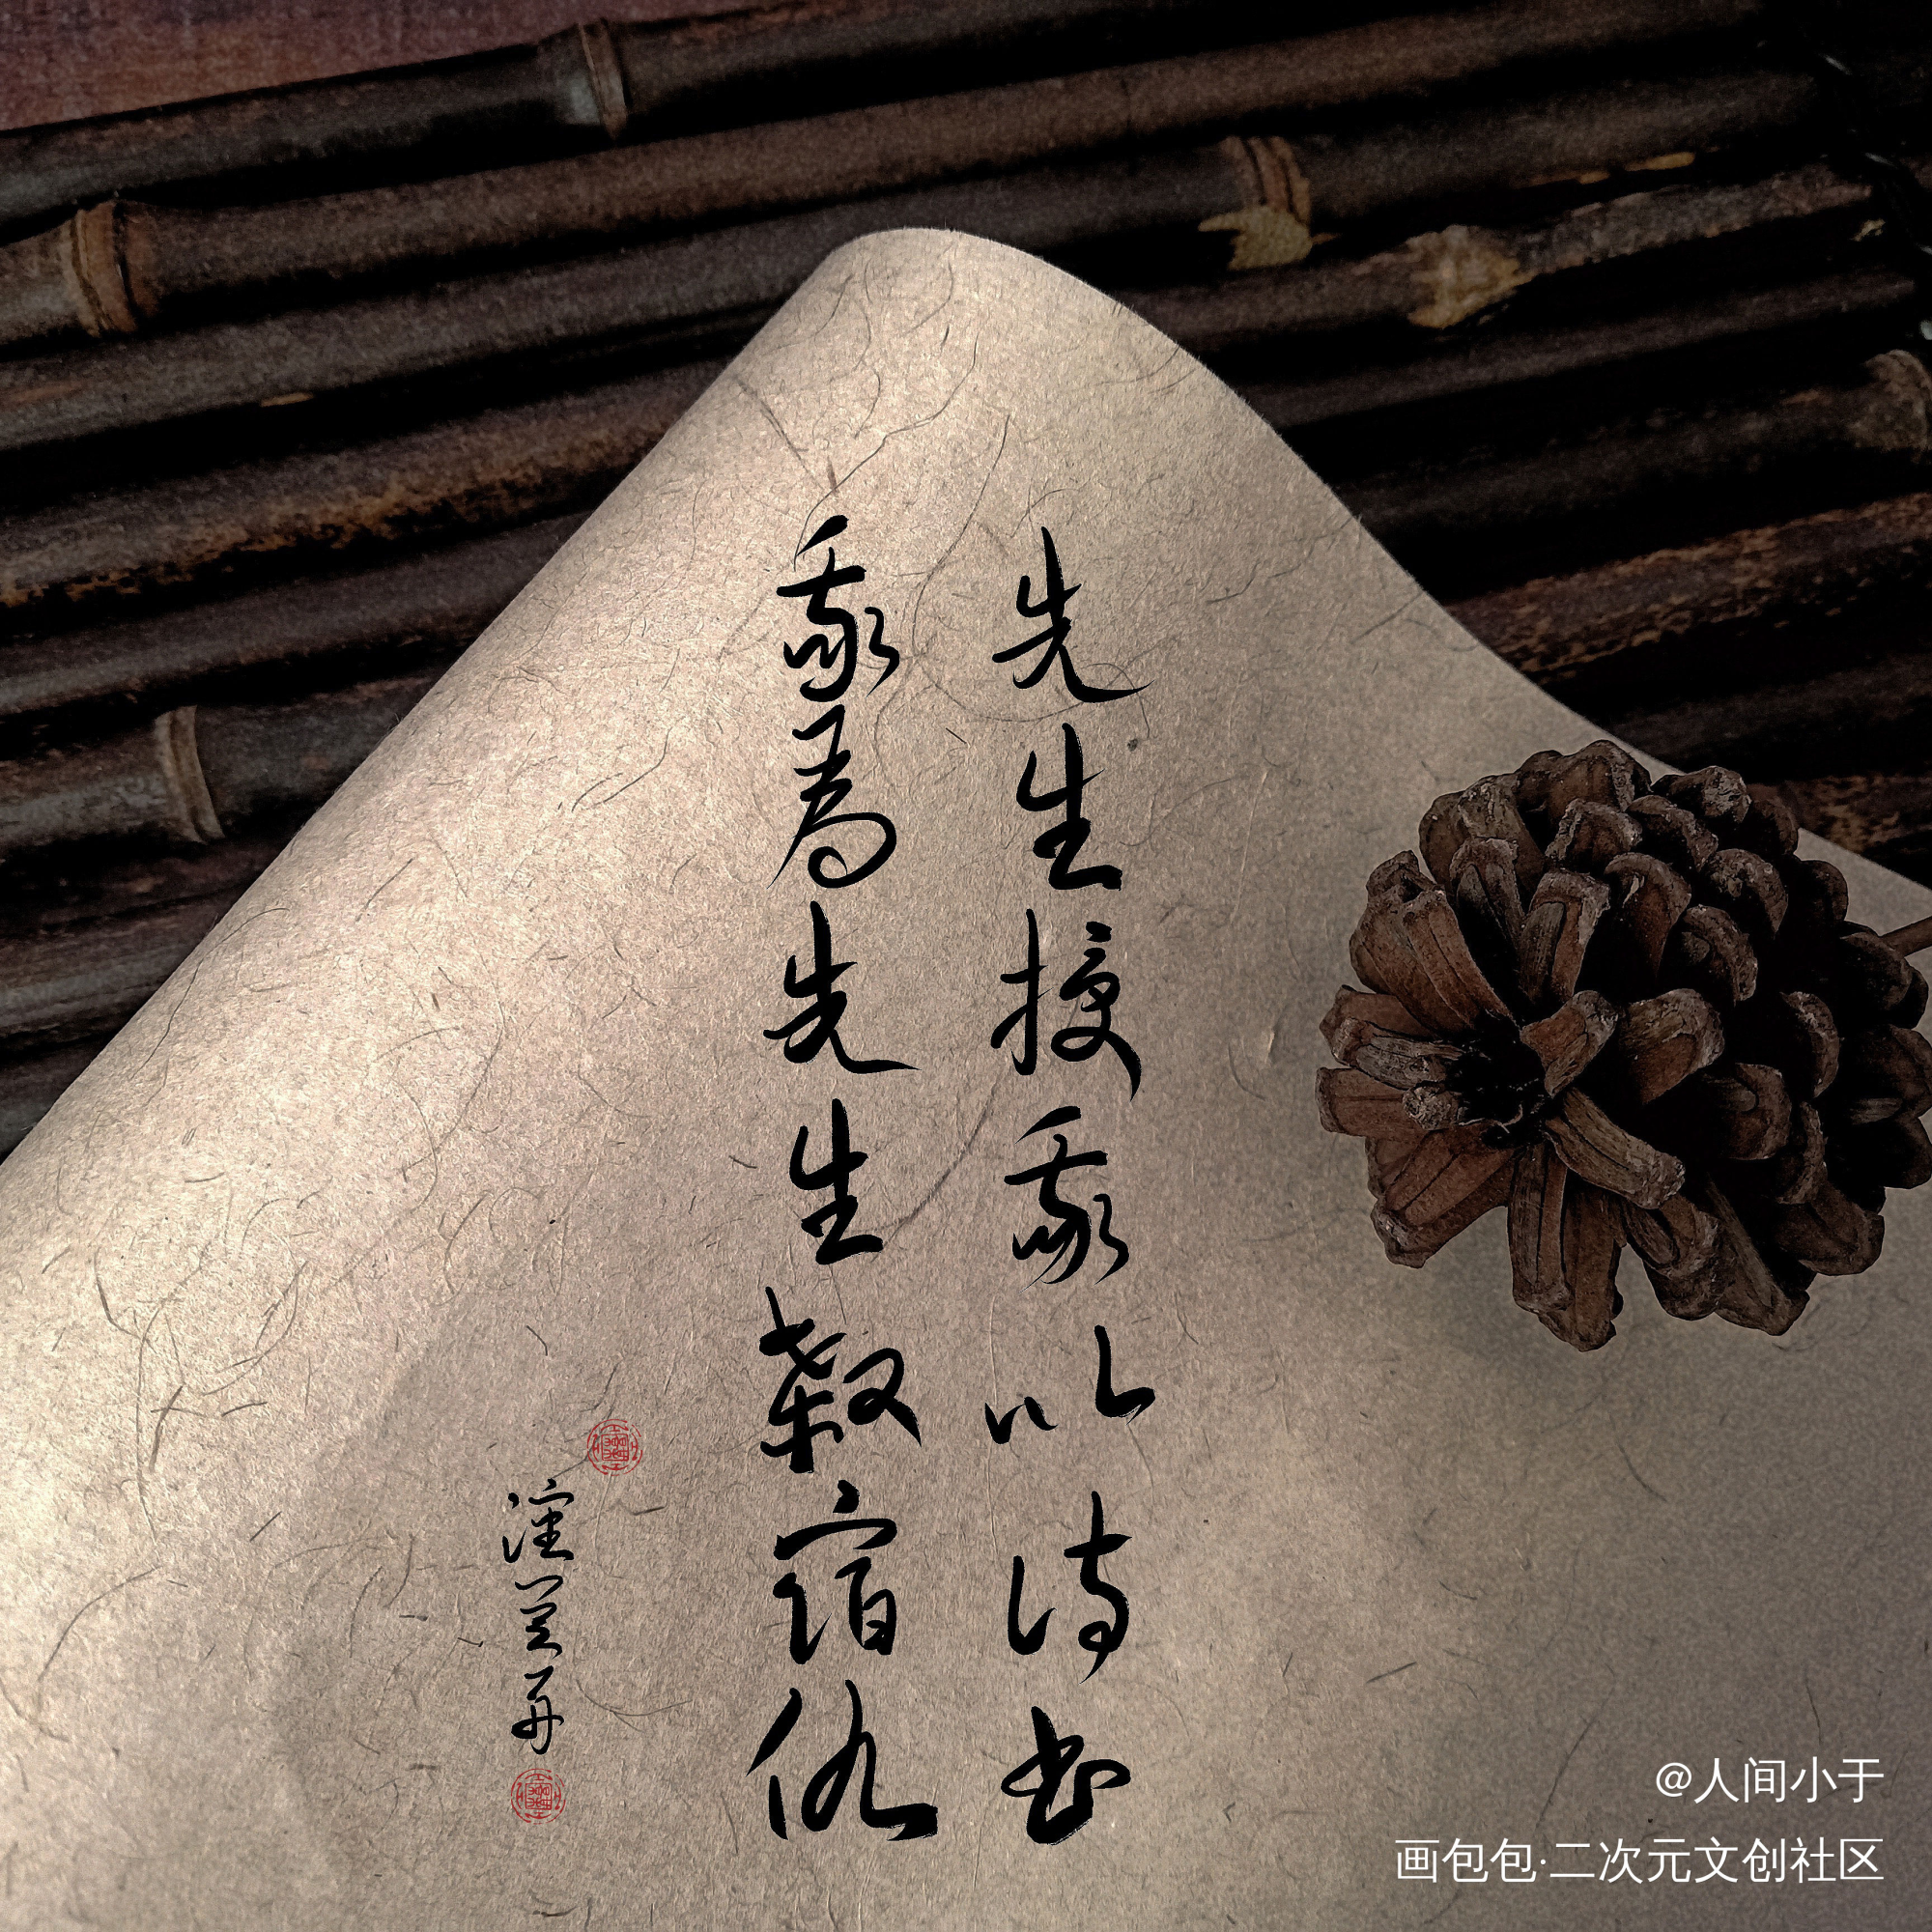 先生授我以诗书
我为先生杀宿仇
@人间小于
画包包·二次元文创社区